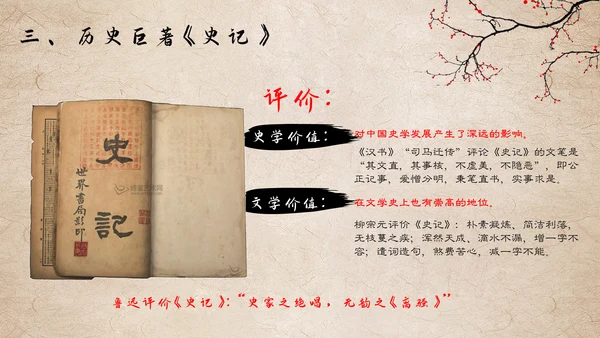 三、历史巨著《史记》
评价：
史学价值：
对中国史学发展产生了深远的影响。
《汉书》“司马迁传”评论《史记》的文笔是
“其文直，其事核，不虚美，不隐恶”，即公
正记事，爱憎分明，秉笔直书，实事求是。
文学价值：
在文学史上也有崇高的地位。
柳宗元评价《史记》：朴素凝炼、简洁利落，
无枝蔓之疾；浑然天成、滴水不漏，增一字不
容；遣词造句，煞费苦心，减一字不能。
史记
世界书局影印
鲁迅评价《史记》：“史家之绝唱，无韵之《离骚》”